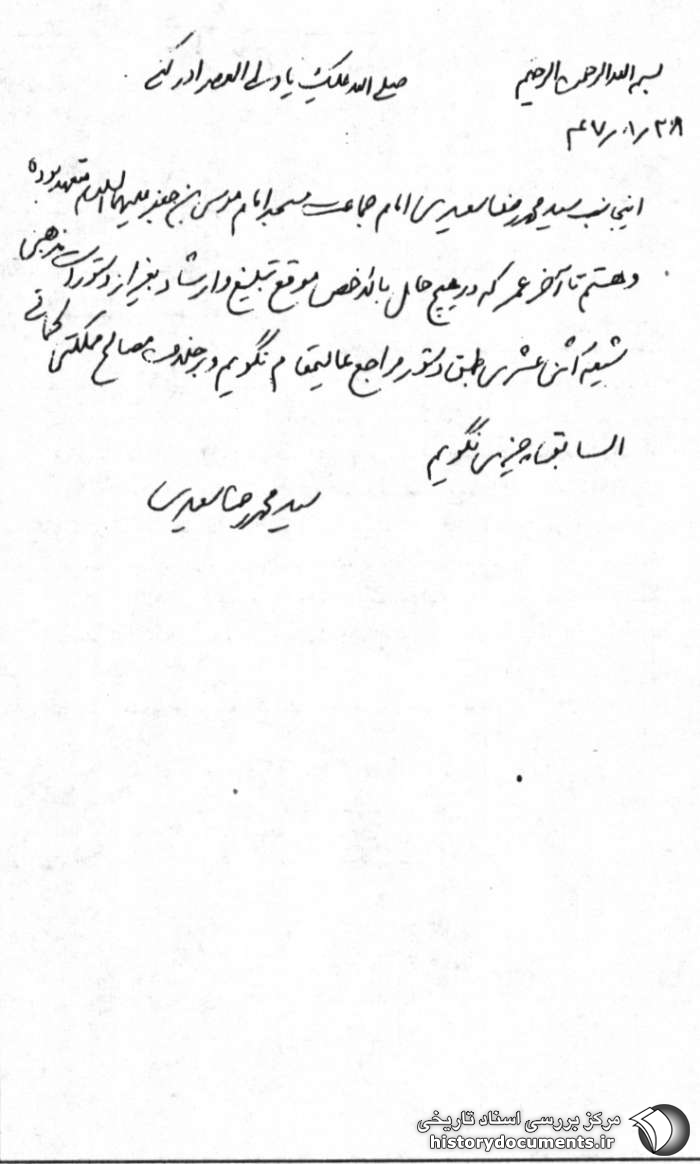 بسم الله الرحمن الرحیم صلی الله علیک یا ولی العصر ادرکنی
۴۷/۰۱/۲۸
اینجانب سید محمدرضا سعیدی امام جماعت مسجد امام موسی بن جعفر علیهما السلام متعهد بوده
و هستم تا آخر عمر که در هیچ حال بالاخص موقع تبلیغ و ارشاد بغیر از دستورات مذهبی
شیعه اثنی عشری طبق دستور مراجع عالیمقام نگویم و بر خلاف مصالح مملکتی کمافی
السابق چیزی نگویم
سید محمدرضا سعیدی
مرکز بررسی اسناد تاریخی
historydocuments.ir